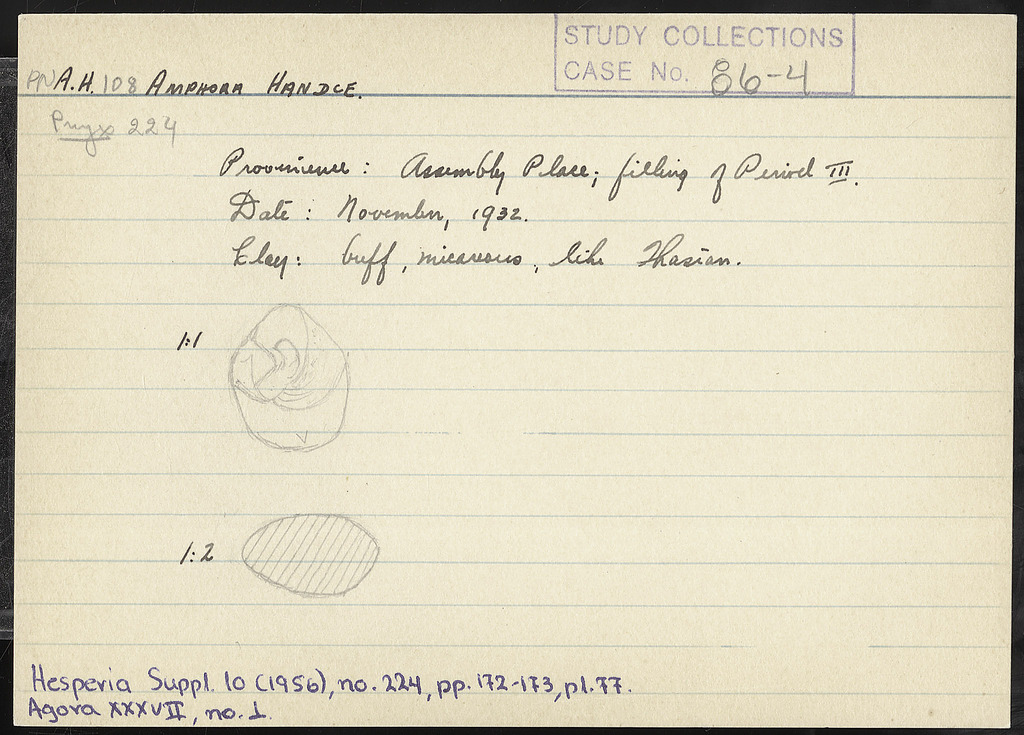 STUDY COLLECTIONS
CASE No. 86-4
PN A.H. 108 AMPHORA HANDLE.
Pnyx 224
Provenience: Assembly Place; filling of Period III.
Date: November, 1932.
Clay: buff, micaceous, like Thasian.
1:1
1:2
Hesperia Suppl. 10 (1956), no. 224, pp. 172-173, pl. 77.
Agora XXXVII, no. 1.